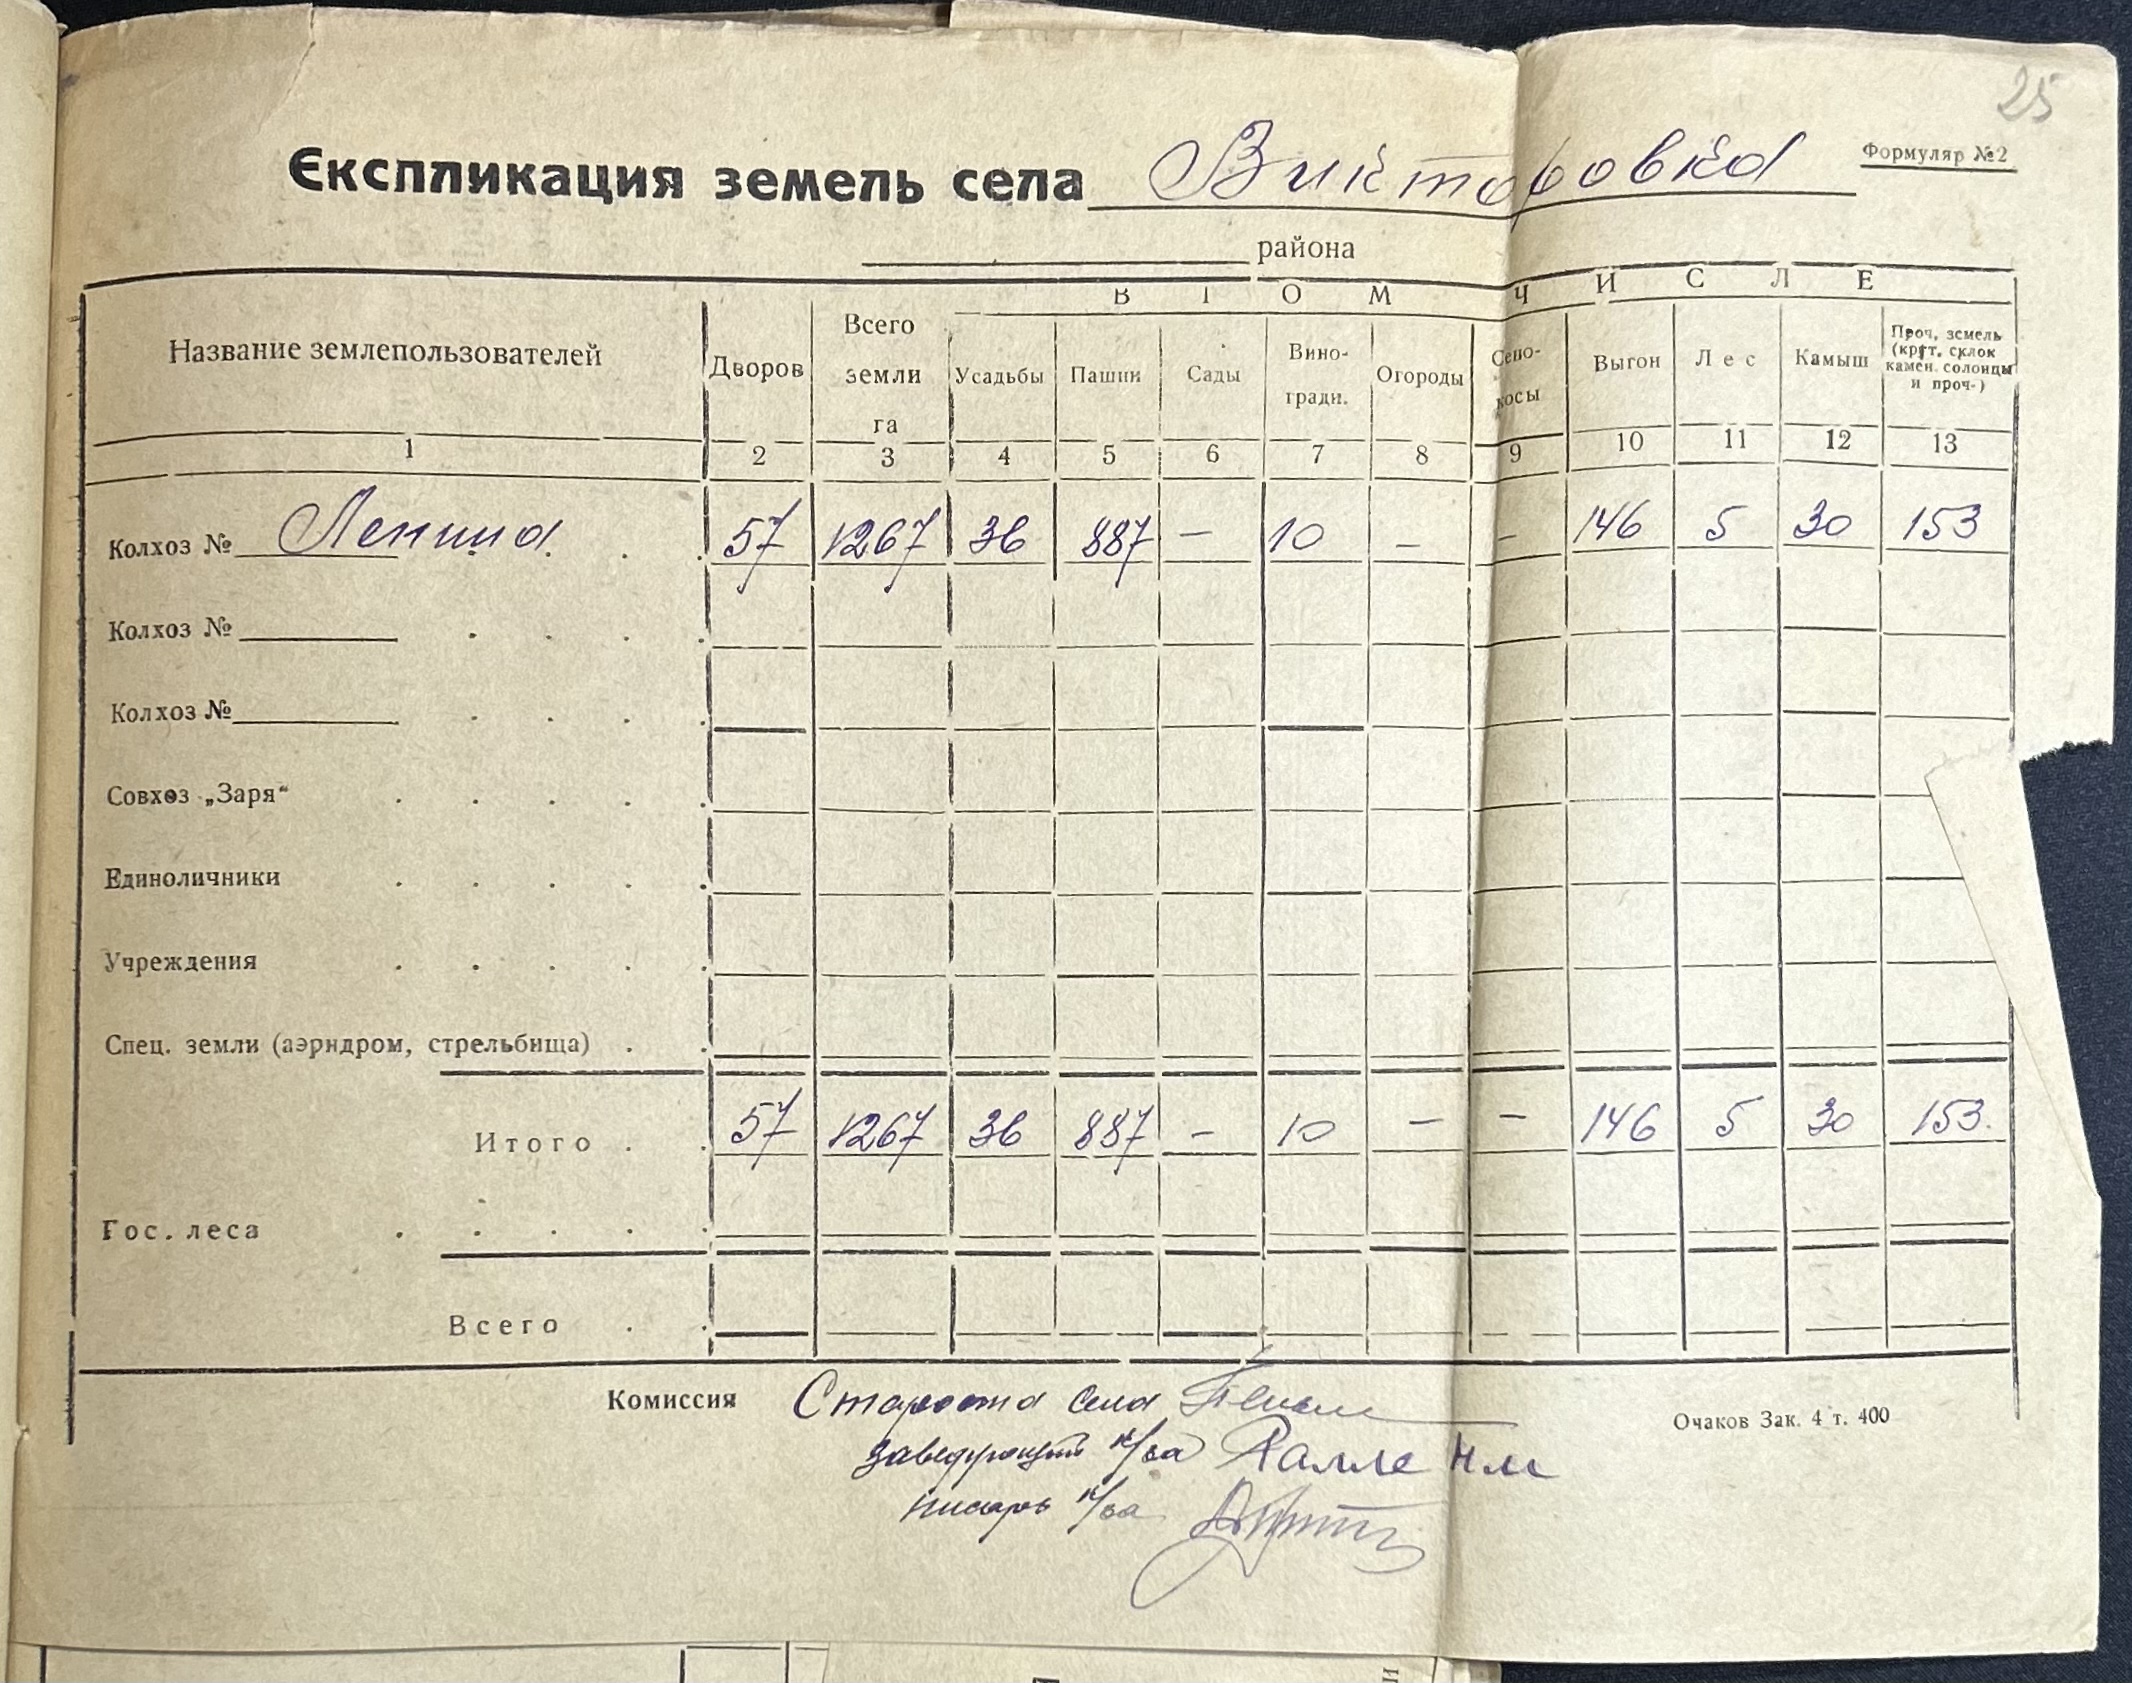 25
Експликация земель села Викторовка
Формуляр №2
района
В ТОМ ЧИСЛЕ
Название землепользователей Дворов Всего земли га Усадьбы Пашни Сады Вино- гради. Огороды Сено- косы Выгон Лес Камыш Проч, земель (крут. склок камен. солонцы и проч-)
1 2 3 4 5 6 7 8 9 10 11 12 13
Колхоз № Ленина 57 1267 36 887 – 10 – – 146 5 30 153
Колхоз №
Колхоз №
Совхоз „Заря“
Единоличники
Учреждения
Спец. земли (аэрндром, стрельбища)
Итого 57 1267 36 887 – 10 – – 146 5 30 153
Гос. леса
Всего
Комиссия Староста села
Очаков Зак. 4 т. 400
Заведующий к/ва
писарь к/ва